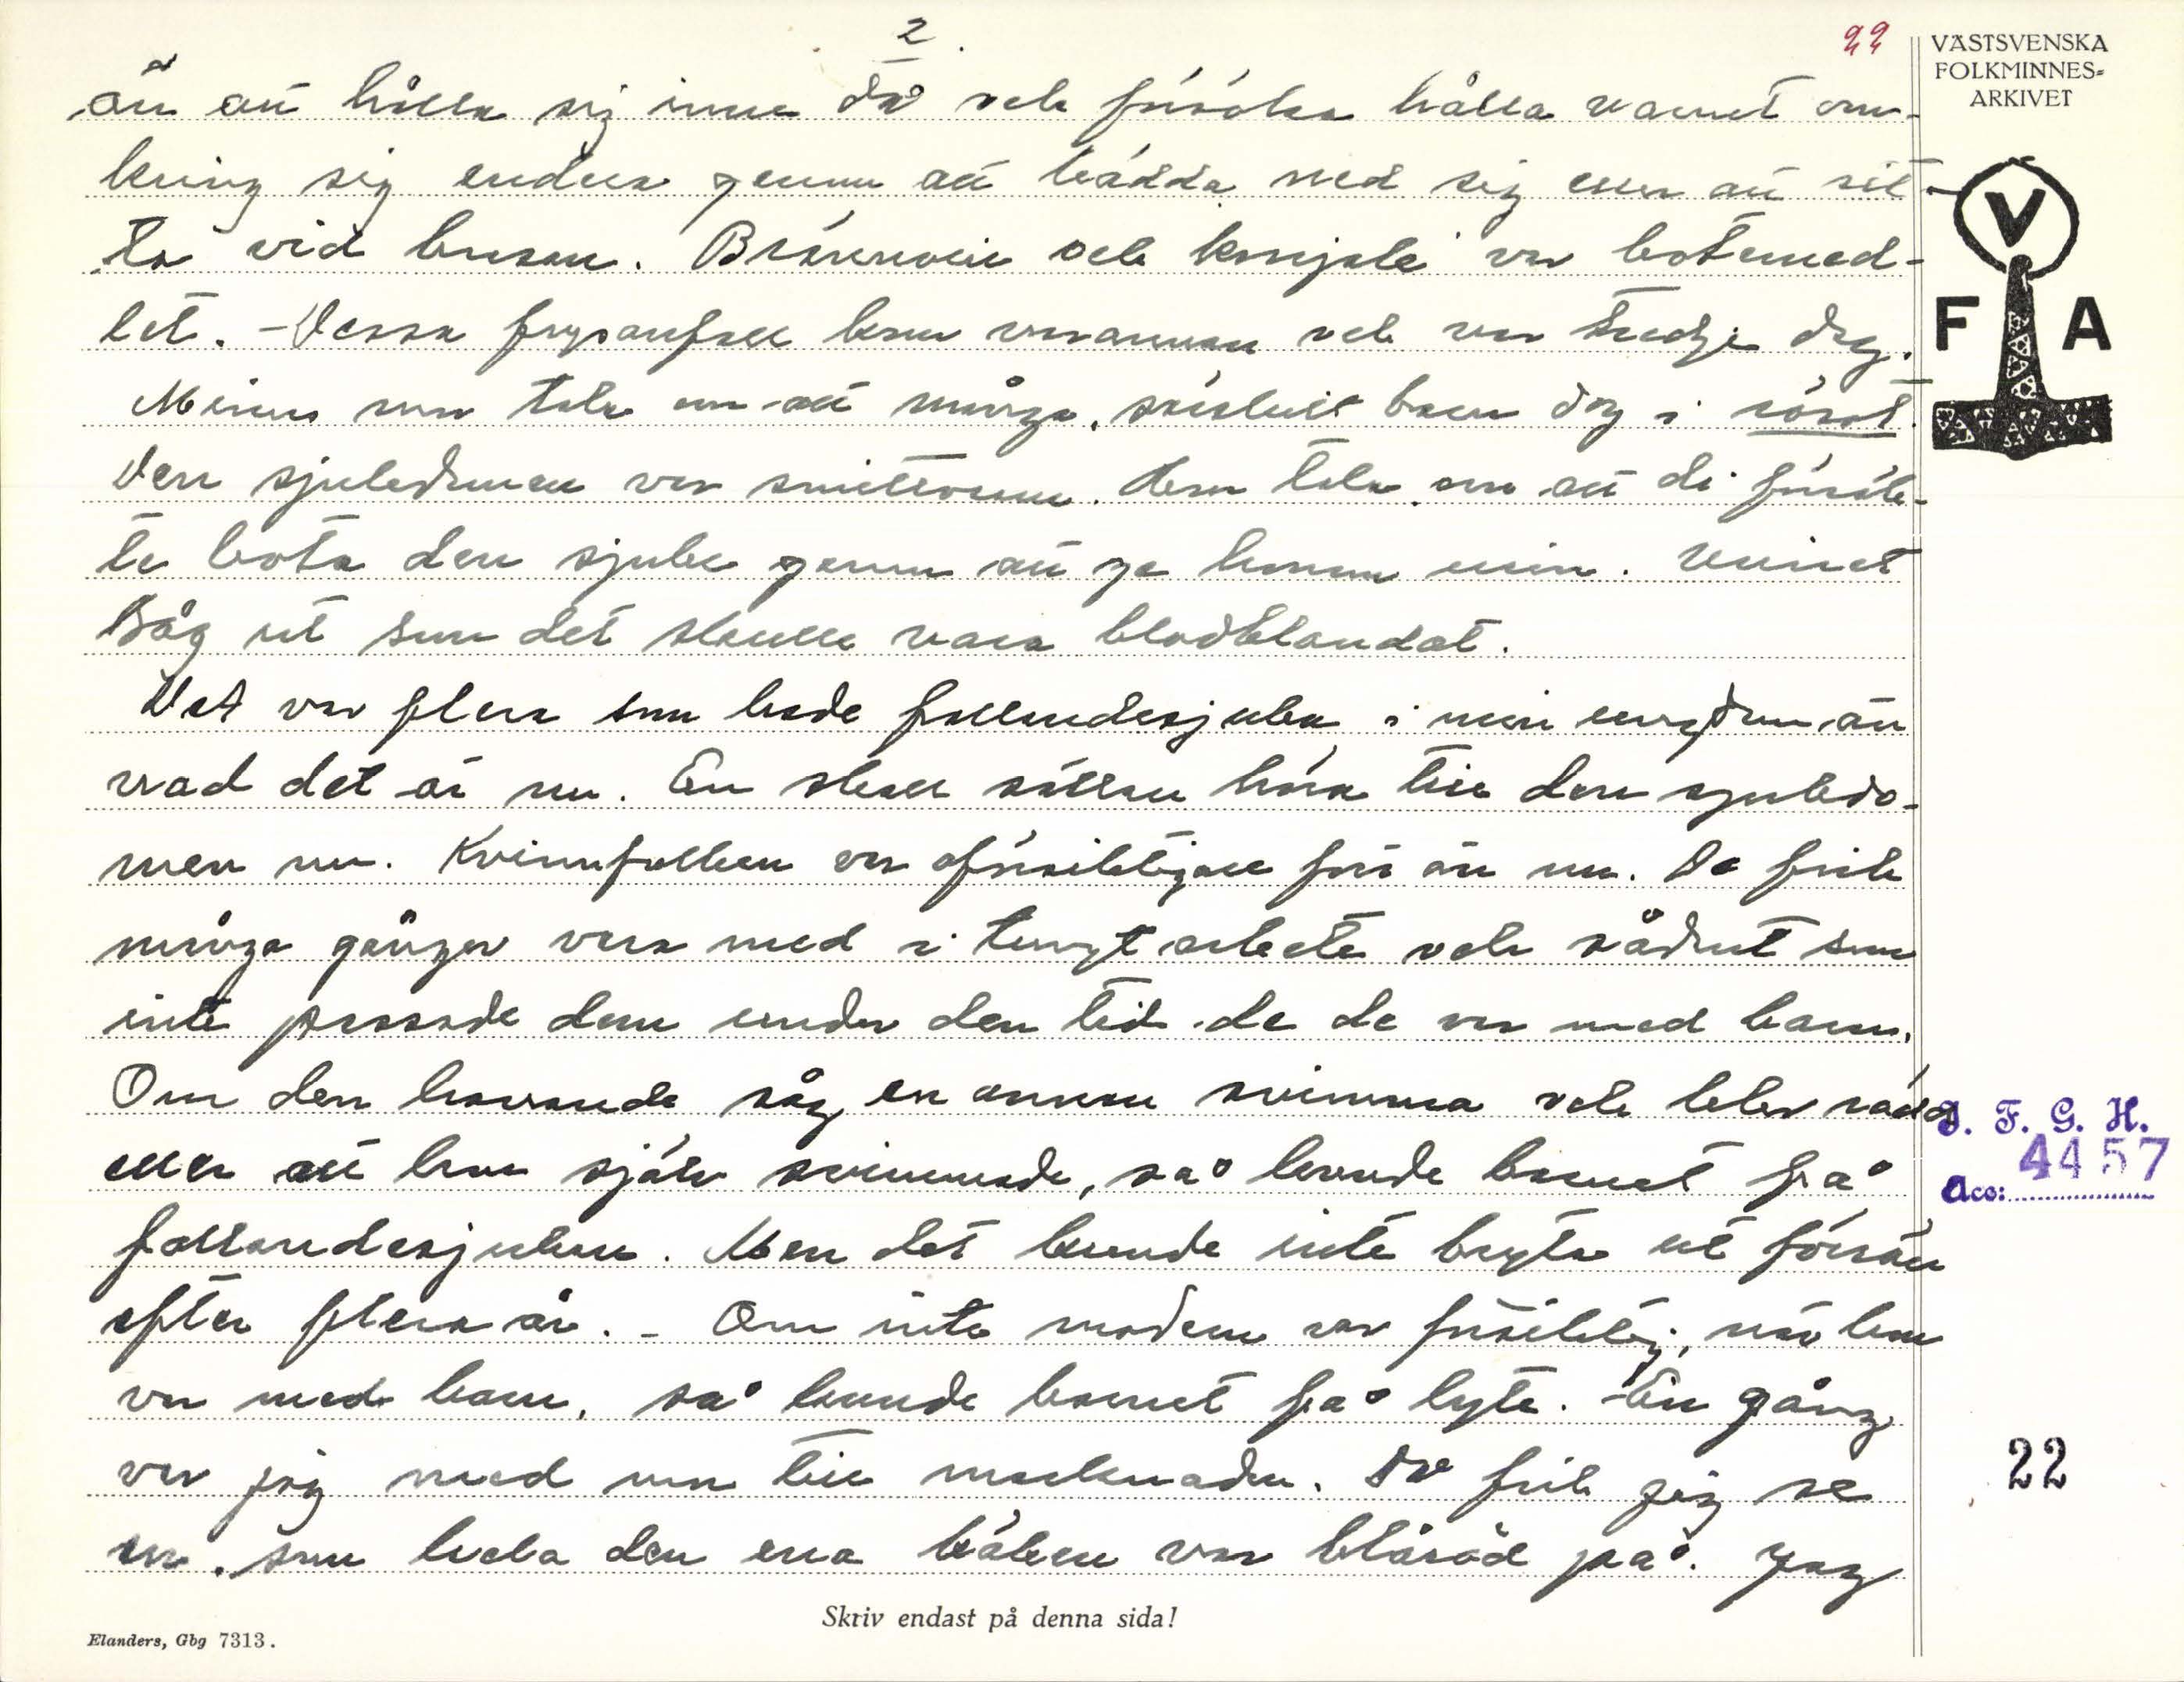 2.
22
VÄSTSVENSKA
FOLKMINNES-
ARKIVET
V
F A
än att hålla sig inne då och försöka hålla varmt om-
kring sig endera genom att bädda ned sig eller att sit-
ta vid brasan. Brännvin och konjak var botemed-
let. - Dessa frysanfall kom varannan och var tredje dag.
Minns mor tala om att många, särskilt barn dog i rösot.
Den sjukdomen var smittosam. Hon tala om att di försök-
te bota den sjuke genom att ge honom urin. Urinet
såg ut som det skulle vara blodblandat.
Det var flera som hade fallandesjuka i min ungdom än
vad det är nu. En skall sällan höra till den sjukdo-
men nu. Kvinnfolken var oförsiktigare förr än nu. De fick
många gånger vara med i tungt arbete och sådant som
inte passade dem under den tid de de var med barn.
Om den havande såg en annan svimma och blev rädd
eller att hon själv svimmade, så kunde barnet få
fallandesjukan. Men det kunde inte bryta ut förrän
efter flera år. - Om inte modern var försiktig, när hon
var med barn, så kunde barnet få lyte. - En gång
var jag med mor till marknaden. Då fick jag se
en som hela den ena kälken var blåröd på. Jag
I. F. G. H.
Acc: 4457
22
Skriv endast på denna sida!
Elanders, Gbg 7313.